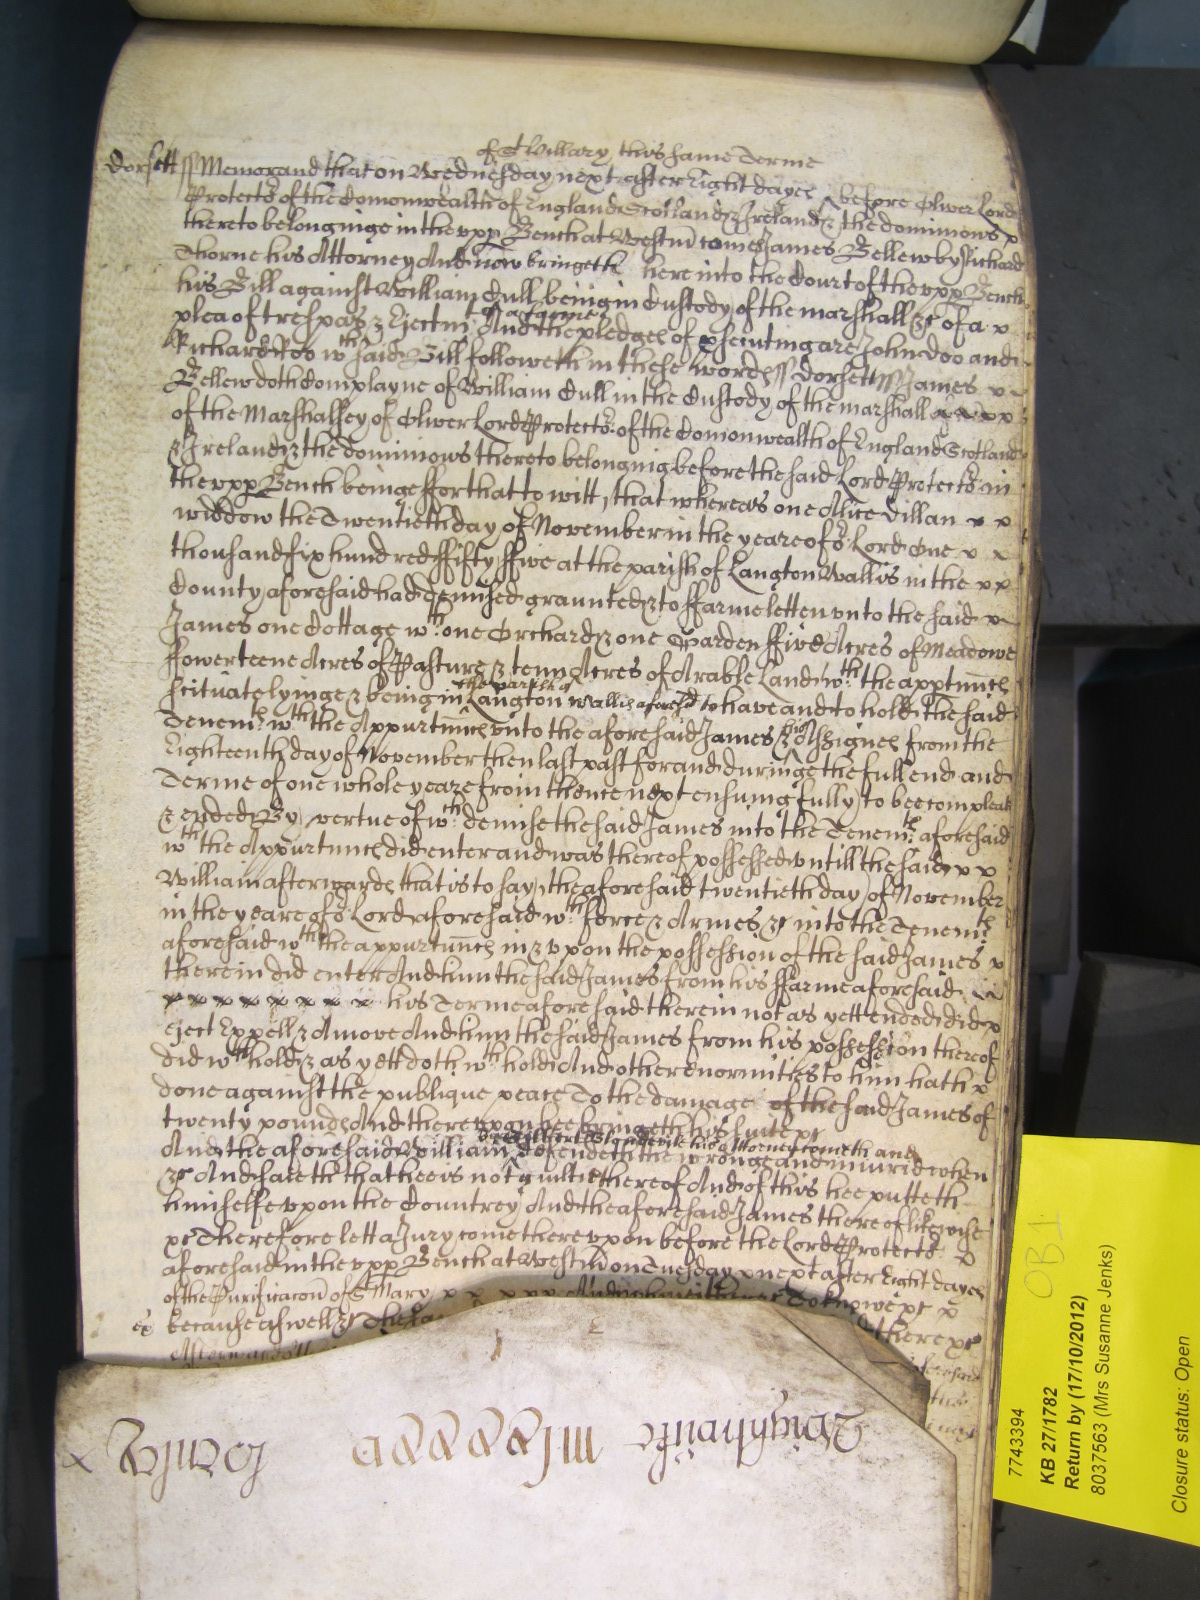 of St Hillary this same Terme
Dorsett ss Memorand that on Wednesday next after Eight dayes ‸ before Oliver Lord
Protector of the Comonwealth of England Scotland & Ireland & the dominions x
thereto belonginge in the upp Bench at Westm comes James Bellew by Richard
Thorne his Attorney And now bringeth here into the Court of the upp Bench
his Bill against William Cull being in Custody of the marshall &c of a x
plea of trespas & Ejectm of a farme And the pledges of psecuting are John Doo and
Richard Roo wch said Bill followeth in these words ss Dorsett ss James x
Bellew doth Complayne of William Cull in the Custody of the marshall x x x x
of the Marshallsey of Oliver Lord Protector of the Comonwealth of England Scotland
& Ireland & the Dominions thereto belonging before the said Lord Protector in
the upp Bench beinge ffor that to witt, that whereas one Alice Dillan x x
widdow the Twentieth day of November in the yeare of or Lord One x x
thousand six hundred ffifty ffive at the parish of Langton Wallis in the x x
County aforesaid had demised graunted & to ffarme letten unto the said x
James one Cottage wth one Orchard & one Garden ffive Acres of Meadowe
ffowerteene Acres of Pasture & tenn Acres of Arable Land wth the apptnnces
scituate lyinge & being in the parish of Langton Wallis aforesd to have and to hold the said
Tenemts wth the Appurtnnces unto the aforesaid James & his Assignes from the
Eighteenth day of November then last past for and duringe the full end and
Terme of one whole yeare from thence next ensuing fully to bee compleat
& ended By vertue of wch demise the said James into the Tenemts aforesaid
wth the Appurtnnces did enter and was thereof possessed untill the said x x
William afterwards that is to say, the aforesaid twentieth day of November
in the yeare of or Lord aforesaid wth force & Armes &c into the Tenemts
aforesaid wth the appurtnnces in & upon the possession of the said James x
therein did enter And him the said James from his ffarme aforesaid
x x x x x x x x his Terme aforesaid therein not as yett ended did x
eject Expell & Amove And him the said James from his possession thereof
did wth hold & as yett doth wth hold And other enormities to him hath x
done against the publique peace To the damage of the said James of
twenty pounds And thereupon hee bringeth his suite &c
And the aforesaid William by his Attorney cometh and defendeth the wronge and injurie when
&c And saieth that hee is not guiltie thereof And of this hee putteth
himselfe upon the Countrey And the aforesaid James thereof likewise
&c Therefore lett a Jury come thereupon before the Lord Protector x
aforesaid in the upp Bench at Westm on Tuesday x next after Eight dayes
of the Purificacon of St Mary x x x x x x And who neither &c To knowe &c x
because aswell &c The sa there &c
Afterwards
7743394
KB 27/1782
Return by (17/10/2012)
8037563 (Mrs Susanne Jenks)
Closure status: Open
OB 1